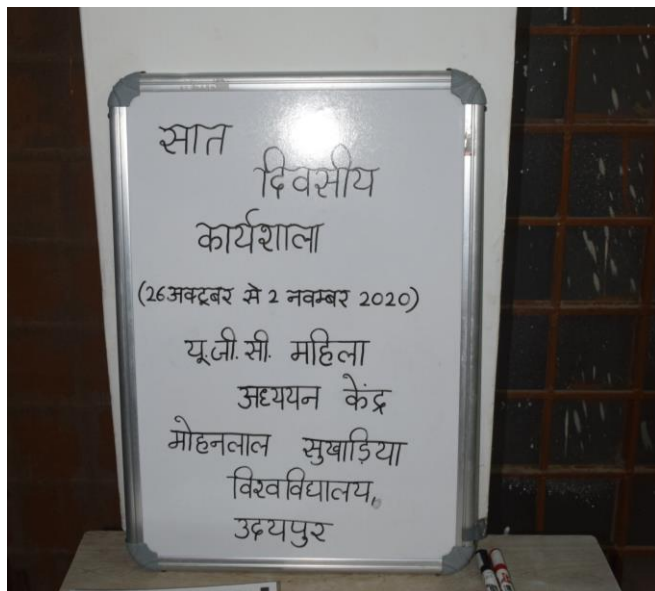 सात
दिवसीय
कार्यशाला
(26अक्टूबर से 2 नवम्बर 2020)
यू.जी.सी. महिला
अध्ययन केंद्र
मोहनलाल सुखाड़िया
विश्वविद्यालय,
उदयपुर